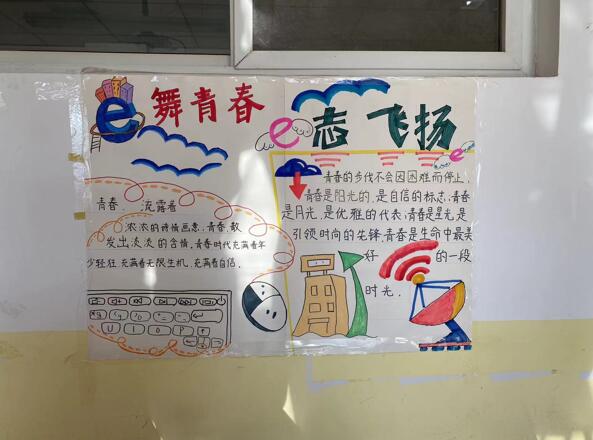 e舞青春
e志飞扬
青春 流露着
浓浓的诗情画意,青春,散
发出淡淡的含情,青春时代充满着年
少轻狂,充满着无限生机,充满着自信.
U I O P
青春的步伐不会因困难而停止.
青春是阳光的,是自信的标志,青春
是月光,是优雅的代表,青春是星光是
引领时向的先锋,青春是生命中最美
好 的一段
时光.